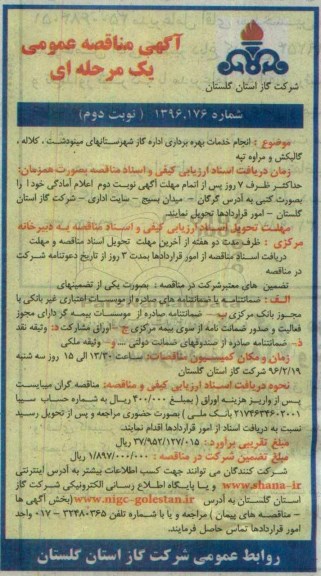 آگهی مناقصه عمومی
یک مرحله ای
شرکت گاز استان گلستان
شماره ۱۳۹۶,۱۷۶ ( نوبت دوم )
موضوع : انجام خدمات بهره برداری اداره گاز شهرستانهای مینودشت ، کلاله ،
گالیکش و مراوه تپه
زمان دریافت اسناد ارزیابی کیفی و اسناد مناقصه بصورت همزمان:
حداکثر ظرف ۷ روز پس از اتمام مهلت آگهی نوبت دوم اعلام آمادگی خود را
بصورت کتبی به آدرس گرگان - میدان بسیج - سایت اداری - شرکت گاز استان
گلستان - امور قراردادها تحویل نمایند.
مهلت تحویل اسناد ارزیابی کیفی و اسناد مناقصه به دبیرخانه
مرکزی : ظرف مدت دو هفته از آخرین مهلت تحویل اسناد مناقصه و مهلت
دریافت اسناد مناقصه از امور قراردادها بمدت ۳ روز از تاریخ دعوتنامه شرکت
در مناقصه
تضمین های معتبر شرکت در مناقصه : بصورت یکی از تضمینهای
الف - ضمانتنامه یا ضمانتنامه های صادره از موسسات اعتباری غیر بانکی با
مجوز بانک مرکزی ب- ضمانتنامه صادره از موسسات بیمه گر دارای مجوز
فعالیت و صدور ضمانت نامه از سوی بیمه مرکزی ج- اوراق مشارکت د- وثیقه نقد
ذ- ضمانتنامه صادره از صندوقهای ضمانت دولتی و- وثیقه ملکی
زمان و مکان کمیسیون مناقصات: ساعت ۱۳/۳۰ الی ۱۵ روز سه شنبه
۹۶/۲/۱۹ شرکت گاز استان گلستان
نحوه دریافت اسناد ارزیابی کیفی و مناقصه: مناقصه گران میبایست
پس از واریز هزینه اوراق ( بمبلغ ۳۰۰/۰۰۰ ریال به شماره حساب سیبا
۲۱۷۴۶۳۴۶۰۲۰۰۱ بانک ملی ) بصورت حضوری مراجعه و پس از تحویل رسید
نسبت به دریافت اسناد از امور قراردادها اقدام نمایند.
مبلغ تقریبی برآورد: ۳۷/۹۵۲/۱۲۷/۰۱۵ ریال
مبلغ تضمین شرکت در مناقصه : ۱/۸۹۷/۰۰۰/۰۰۰ ریال
شرکت کنندگان می توانند جهت کسب اطلاعات بیشتر به آدرس اینترنتی
www.shana-ir و یا پایگاه اطلاع رسانی الکترونیکی شرکت گاز
استان گلستان به آدرس www.nigc-golestan.ir (بخش آگهی ها
- مناقصه های پیمان ) مراجعه و یا با شماره تلفن ۳۲۴۸۰۳۶۵ - ۰۱۷ واحد
امور قراردادها تماس حاصل فرمایند.
روابط عمومی شرکت گاز استان گلستان